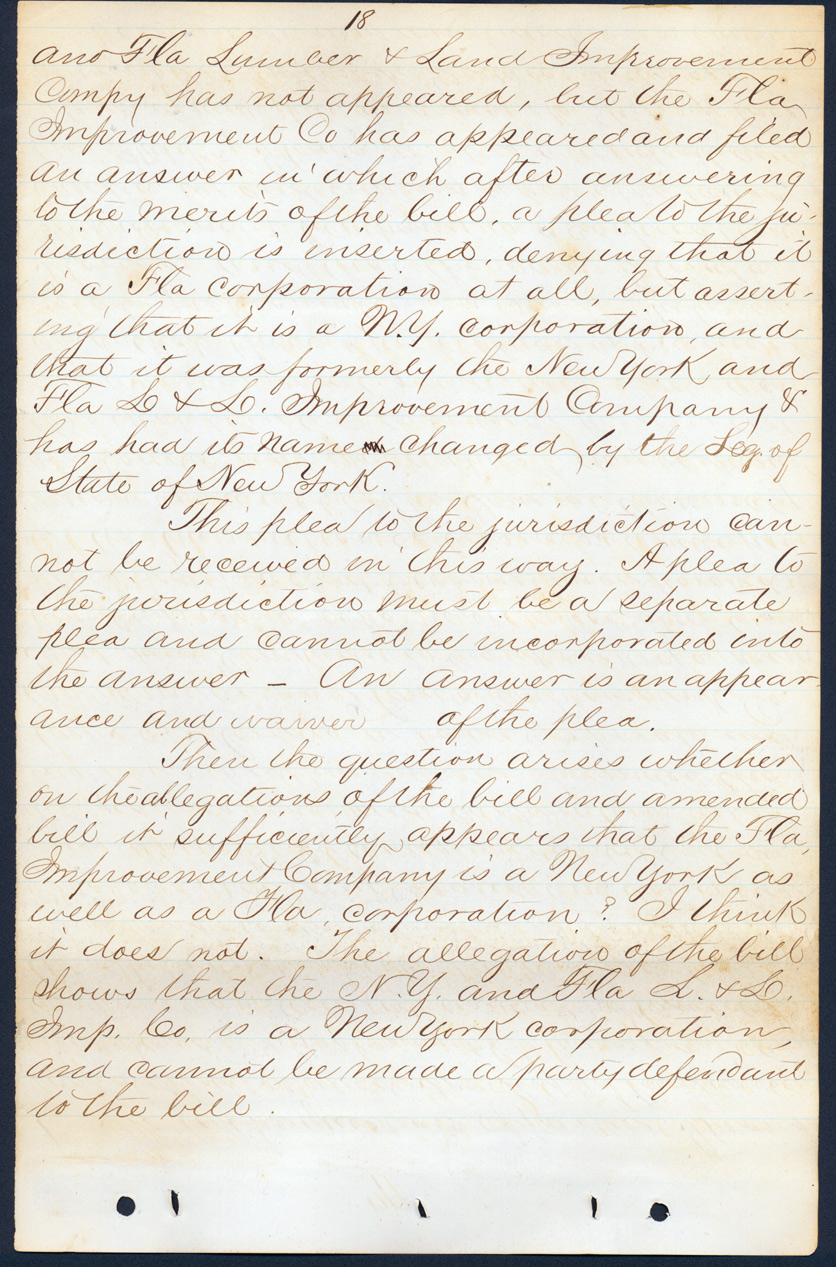 18
and Fla Lumber & Land Improvement
Compy has not appeared, but the Fla
Improvement Co has appeared and filed
an answer in which after answering
to the merits of the bill, a plea to the ju-
risdiction is inserted, denying that it
is a Fla corporation at all, but assert-
ing that it is a N.Y. corporation, and
that it was formerly the New York and
Fla L & L. Improvement Company &
has had its name changed, by the Leg. of
State of New York.
This plea to the jurisdiction can-
not be received in this way. A plea to
the jurisdiction must be a separate
plea and cannot be incorporated into
the answer — An answer is an appear-
ance and waiver of the plea.
Then the question arises whether
on the allegations of the bill and amended
bill it sufficiently appears that the Fla,
Improvement Company is a New York as
well as a Fla, corporation? I think
it does not. The allegation of the bill
shows that the N.Y. and Fla L. & L.
Imp. Co. is a New York corporation,
and cannot be made a party defendant
to the bill.